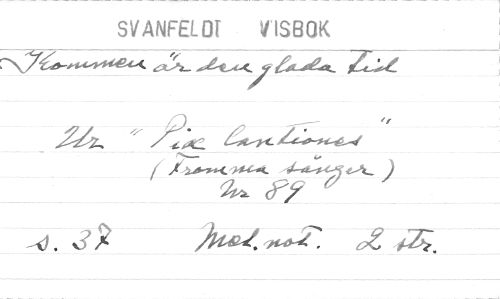 SVANFELDT VISBOK
Kommen är den glada tid
Ur "Piæ Cantiones"
(Fromma sånger)
Nr 89
s. 37 Mel. not. 2 str.